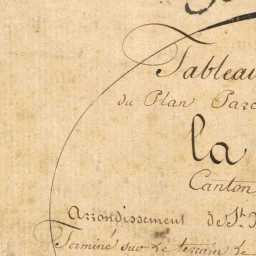 Tableau
du Plan Parc
la
Canton
Arrondissement de St.
Terminé sur le terrain le